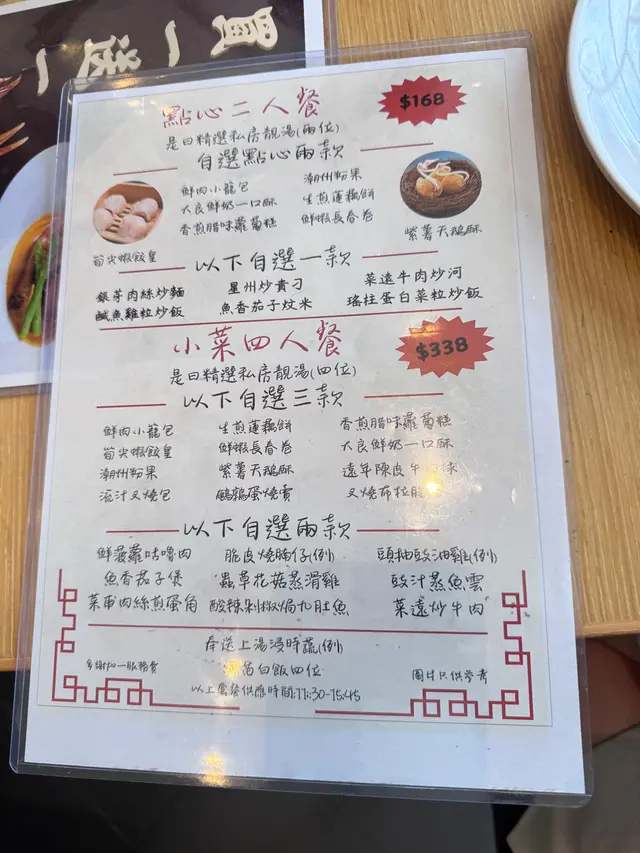 買一送一
點心二人餐
$168
是日精選私房靚湯(兩位)
自選點心兩款
鮮肉小籠包 潮州粉果
大良鮮奶一口酥 生煎蓮藕餅
香煎腊味蘿蔔糕 鮮蝦長春卷
筍尖蝦餃皇 紫薯天鵝酥
以下自選一款
銀芽肉絲炒麵 星州炒貴刁 菜遠牛肉炒河
鹹魚雞粒炒飯 魚香茄子炆米 瑤柱蛋白菜粒炒飯
小菜四人餐
$338
是日精選私房靚湯(四位)
以下自選三款
鮮肉小籠包 生煎蓮藕餅 香煎腊味蘿蔔糕
筍尖蝦餃皇 鮮蝦長春卷 大良鮮奶一口酥
潮州粉果 紫薯天鵝酥 遠年陳皮牛肉球
流汁叉燒包 鵪鶉蛋燒賣 叉燒布拉腸
以下自選兩款
鮮菠蘿咕嚕肉 脆皮燒腩仔(例) 頭抽豉油雞(例)
魚香茄子煲 蟲草花菇蒸滑雞 豉汁蒸魚雲
菜甫肉絲煎蛋角 酸辣剁椒焗九肚魚 菜遠炒牛肉
奉送上湯浸時蔬(例)
絲苗白飯四位
另加一服務費 圖片只供參考
以上套餐供應時間:11:30-15:45